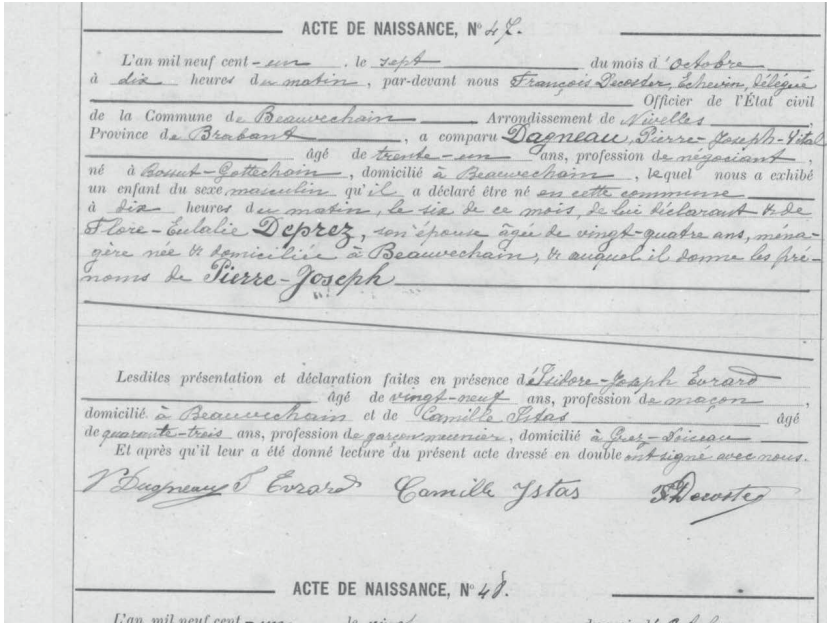 ACTE DE NAISSANCE, N° 47.
L'an mil neuf cent - un, le sept du mois d'octobre
à dix heures du matin, par-devant nous François Decoster, Echevin, délégué
Officier de l'État civil
de la Commune de Beauvechain Arrondissement de Nivelles
Province de Brabant, a comparu Dagneau, Pierre-Joseph-Vital
âgé de trente-un ans, profession de négociant,
né à Bossut-Gottechain, domicilié à Beauvechain, lequel nous a exhibé
un enfant du sexe masculin qu'il a déclaré être né en cette commune
à dix heures du matin, le six de ce mois, de lui déclarant & de
Flore-Eulalie Deprez, son épouse âgé de vingt-quatre ans, ména-
gère née & domiciliée à Beauvechain, & auquel il donne les pré-
noms de Pierre-Joseph
Lesdites présentation et déclaration faites en présence d'Isidore-Joseph Evrard
âgé de vingt-neuf ans, profession de maçon,
domicilié à Beauvechain et de Camille Istas âgé
de quarante-trois ans, profession de garçon meunier, domicilié à Grez-Doiceau
Et après qu'il leur a été donné lecture du présent acte dressé en double ont signé avec nous.
V Dagneau I Evrard Camille Ystas F. Decoster
ACTE DE NAISSANCE, N° 48.
L'an mil neuf cent - un